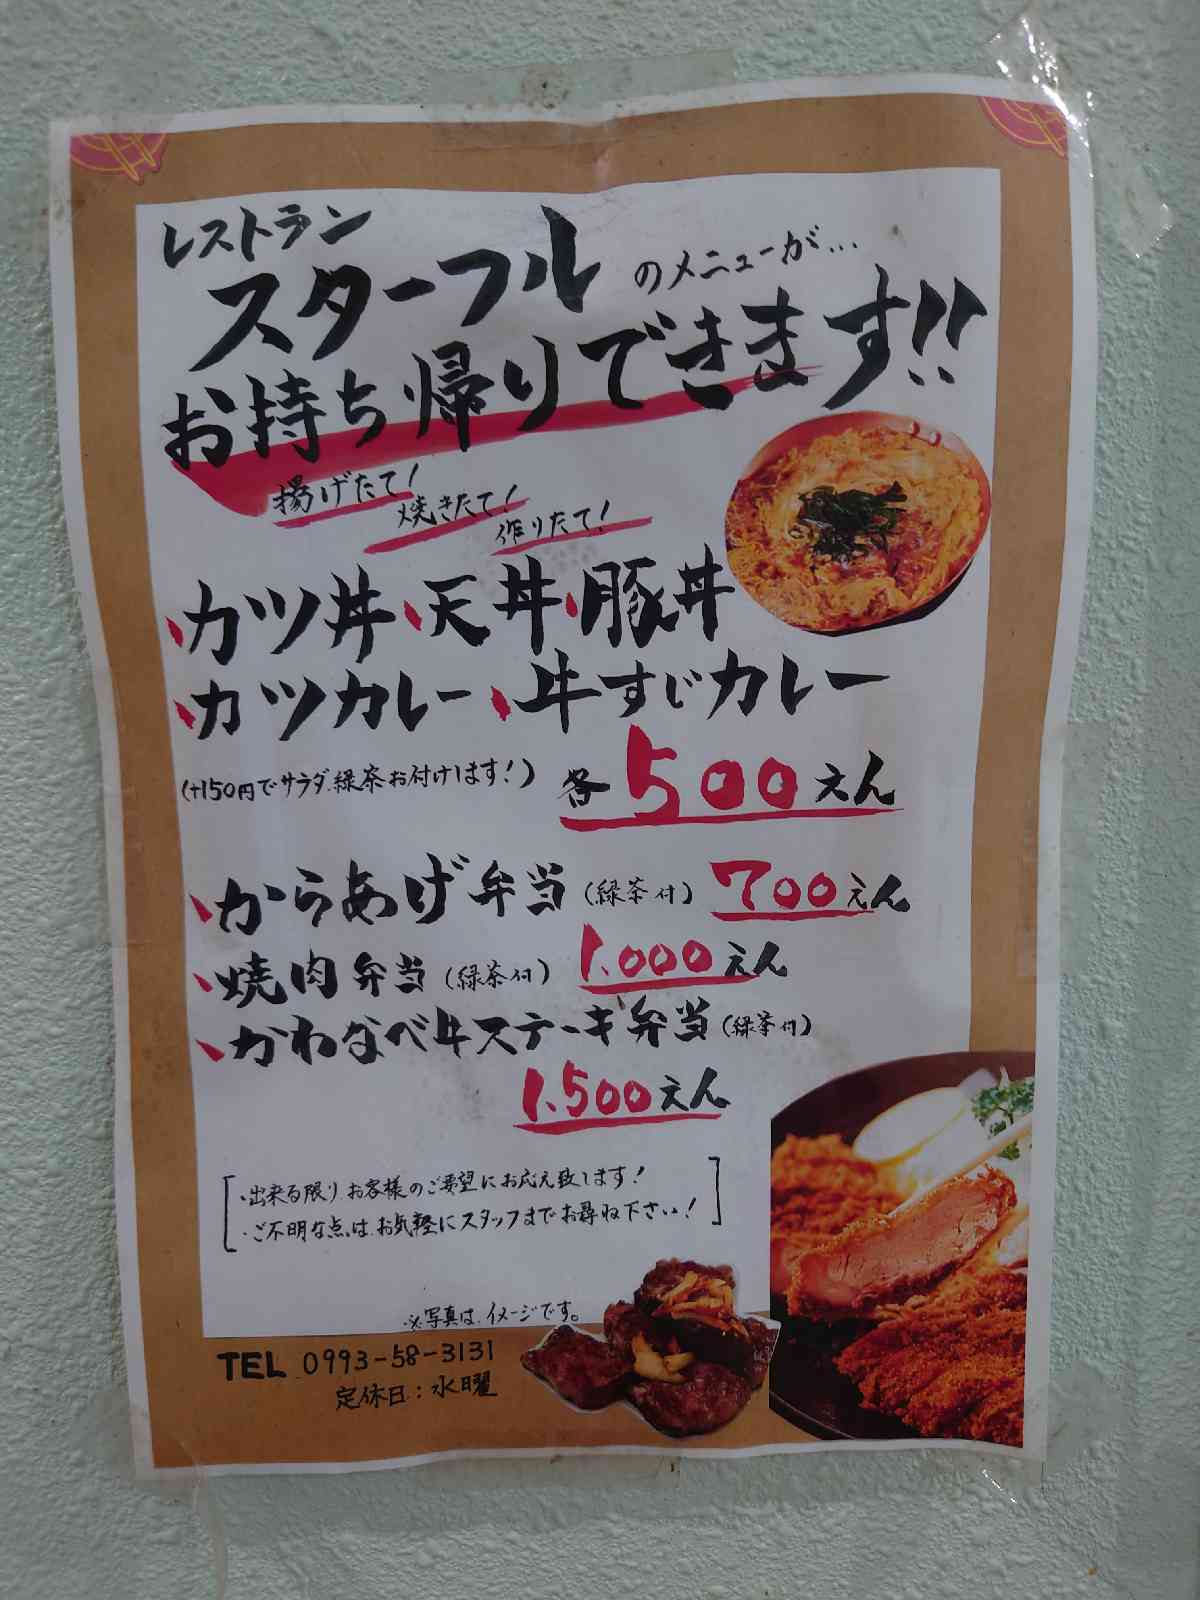 レストラン
スターフルのメニューが…
お持ち帰りできます!!
揚げたて!
焼きたて!
作りたて!
・カツ丼・天丼・豚丼
・カツカレー・牛すじカレー
(+150円でサラダ、緑茶お付けします!) 各500えん
・からあげ弁当(緑茶付) 700えん
・焼肉弁当(緑茶付) 1,000えん
・かわなべ牛ステーキ弁当(緑茶付)
1,500えん
・出来る限りお客様のご要望にお応え致します!
・ご不明な点は、お気軽にスタッフまでお尋ね下さい!
※写真は、イメージです。
TEL 0993-58-3131
定休日:水曜